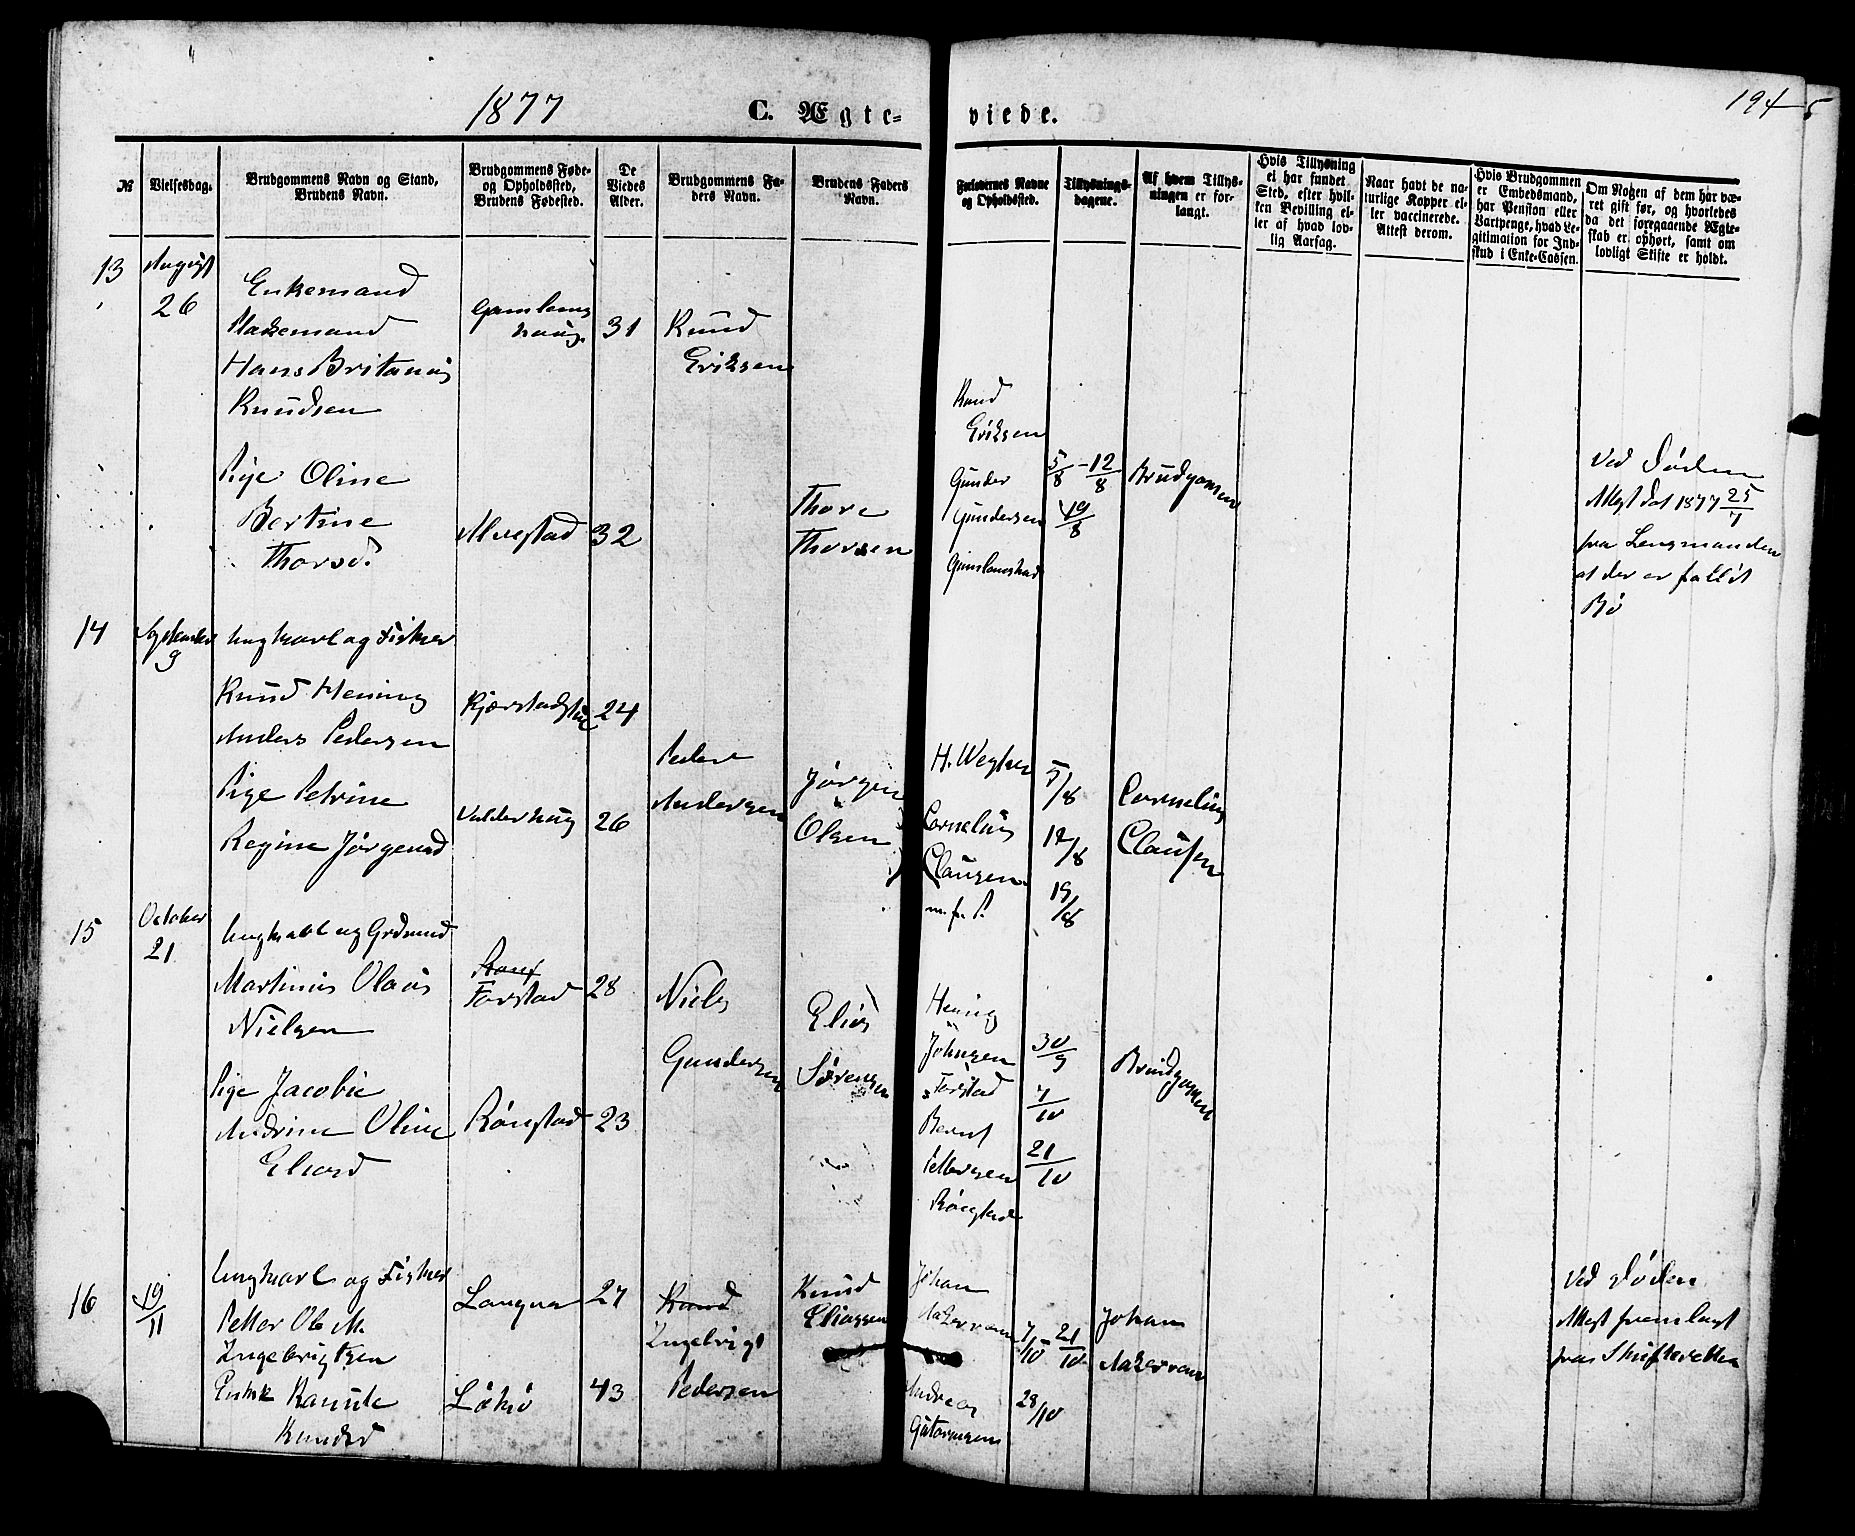 1877
C. Ægte-
viede.
194
5
№
Vielsesdag.
Brudgommens Navn og Stand,
Brudens Navn.
Brudgommens Føde-
og Opholdssted,
Brudens Fødested.
De
Viedes
Alder.
Brudgommens Fa-
ders Navn.
Brudens Faders
Navn.
Forlovernes Navne
og Opholdssted.
Tillysnings-
dagene.
Af hvem Tillys-
ningen er for-
langt.
Hvis Tillysning
ei har fundet
Sted, efter hvil-
ken Bevilling el-
ler af hvad lov-
lig Aarsag.
Naar havt de na-
turlige Kopper el-
ler vaccinerede.
Attest derom.
Hvis Brudgommen
er Embedsmand,
har Pension eller
Vartpenge, hvad Le-
gitimation for Ind-
skud i Enke-Cassen.
Om Nogen af dem har væ-
ret gift før, og hvorledes
da det foregaaende Ægte-
skab er ophørt, samt om
lovligt Skifte er holdt.
13
August
26
Enkemand
Hans Britanius
Knudsen
31
Knud
Eriksen
Pige Oline
Bertine
Thorsd.
Alvestad
32
Thore
Thorsen
Knud
Eriksen
Gunder
Gundersen
5/8 - 12/8
19/8
Brudgomen
Ved Døden
Attest dat 1877 25/7
fra Lensmanden
at der er fallit
Bo
14
September
9
Ungkarl og Fisker
Knud Hening
Anders Pedersen
24
Peder
Andersen
Pige Petrine
Regine Jørgensd
Valderhaug
26
Jørgen
Olsen
Cornelius
Clausen
5/8
12/8
19/8
Cornelius
Clausen
15
October
21
Ungkarl og Grdmand
Martinus Olaus
Nielsen
Farstad
28
Niels
Gundersen
Pige Jacobie
Andrine Oline
Eliasd
Rønstad
23
Elias
Sørensen
Hening
Johnsen
Farstad
Bernt
Pettersen
Rønstad
30/9
7/10
21/10
Brudgomen
16
19/11
Ungkarl og Fisker
Petter Ole M.
Ingebrigtsen
Langva
27
Knud
Ingebrigt
Pedersen
Enke Kanute
Knudsd
Løkø
43
Knud
Eliassen
Johan
Aakervam
Andreas
7/10 21/10
28/10
Johan
Aakervam
Ved Døden
Attest fremlagt
fra Skifteretten